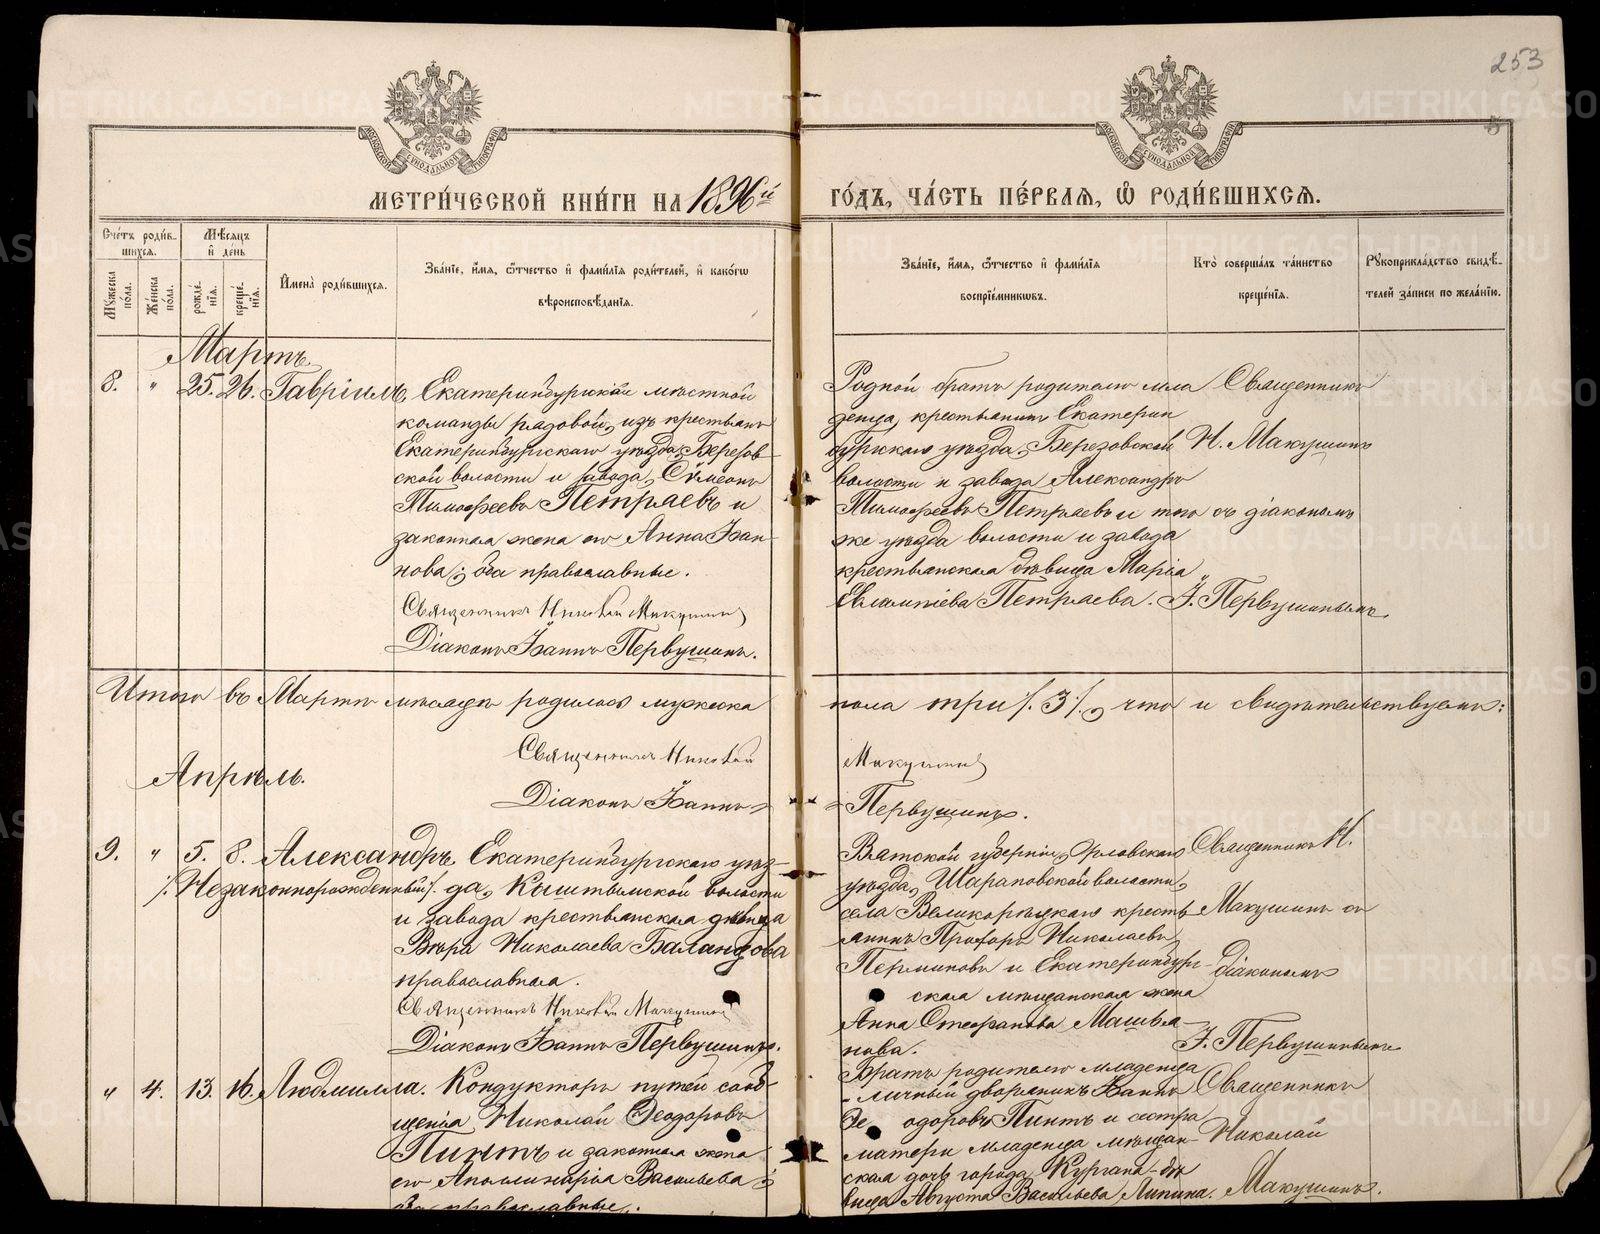 253
5
МОСКОВСКОЙ СѴНОДАЛЬНОЙ ТИПОГРАФІИ
МОСКОВСКОЙ СѴНОДАЛЬНОЙ ТИПОГРАФІИ
МЕТРИ́ЧЕСКОЙ КНИ́ГИ НА 1896й
ГО́ДЪ, ЧА́СТЬ ПЕ́РВАЯ, Ѽ РОДИ́ВШИХСЯ.
Сче́тъ роди́вшихся.
Мѣ́сяцъ и҆ де́нь
Му́жеска по́ла.
Же́нска по́ла.
рожде́нїя.
креще́нїя.
И҆мена̀ роди́вшихся.
Зва́нїе, и҆́мя, ѻ҆́тчество и҆ фами́лїя роди́телей, и҆ како́гѡ
вѣроисповѣ́данїя.
Зва́нїе, и҆́мя, ѻ҆́тчество и҆ фами́лїя
воспрїе́мникѡвъ.
Кто̀ соверша́лъ та́инство
креще́нїя.
Рꙋкоприкла́дство свидѣ́-
телей за́писи по жела́нїю.
Мартъ.
8. " 25. 26. Гавріилъ. Екатеринбургской мѣстной
команды рядовой, изъ крестьянъ
Екатеринбургскаго уѣзда, Березов-
ской волости и завода, Сѵмеонъ
Тимофеевъ Петряевъ и
законная жена его Анна Іоан-
нова; оба православные.
Священникъ Николай Макушинъ
Діаконъ Іоаннъ Первушинъ.
Родной братъ родителю мла
денца, крестьянинъ Екатерин
бургскаго уѣзда, Березовской
волости и завода Александръ
Тимофеевъ Петряевъ и того
же уѣзда волости и завода
крестьянская дѣвица Марія
Евлампіева Петряева.
Священникъ
Н. Макушинъ
съ діакономъ
І. Первушинымъ
Итого въ Мартѣ мѣсяцѣ родилось мужеска
пола три /. 3 /., что и свидѣтельствуемъ:
Священникъ Николай
Макушинъ
Діаконъ Іоаннъ
Первушинъ.
Апрѣль.
9. " 5. 8. Александръ. Екатеринбургскаго уѣз-
/. Незаконнорожденный /. да, Кыштымской волости
и завода крестьянская дѣвица
Вѣра Николаева Баландова
православная.
Священникъ Николай Макушинъ
Діаконъ Іоаннъ Первушинъ.
Вятской губерніи, Орловскаго
уѣзда, Шараповской волости,
села Великорѣцкаго кресть
янинъ Прохоръ Николаевъ
Перминовъ и Екатеринбург-
ская мѣщанская жена
Анна Стефанова Машья-
нова.
Священникъ Н.
Макушинъ съ
діакономъ
І. Первушинымъ
" 4. 13. 16. Людмилла. Кондукторъ путей сооб-
щенія Николай Ѳеодоровъ
Пинтъ и законная жена
его Аполлинарія Васильева;
оба православные.
Братъ родителю младенца
личный дворянинъ Іоаннъ
Ѳеодоровъ Пинтъ и сестра
матери младенца мѣщан-
ская дочь города Кургана дѣ
вица Августа Васильева Липина.
Священникъ
Николай
Макушинъ.
METRIKI.GASO-URAL.RU